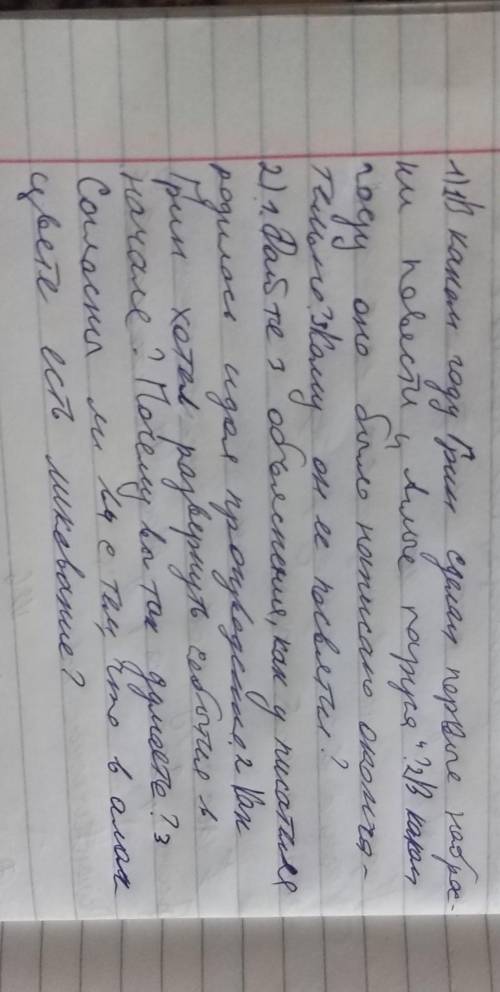 1) 1) В каком году Грин сделал первые наброс-
ки повести „Алые паруса"? 2) В каком
году оно было написано оконча-
тельно? 3) Кому он ее посвятил?
2) 1. Дайте 3 объяснения, как у писателя
родилась идея произведения. 2 Как
Грин хотел развернуть события в
начале? Почему вы так думаете? 3
Согласны ли вы с тем, что в алом
цвете есть ликование?